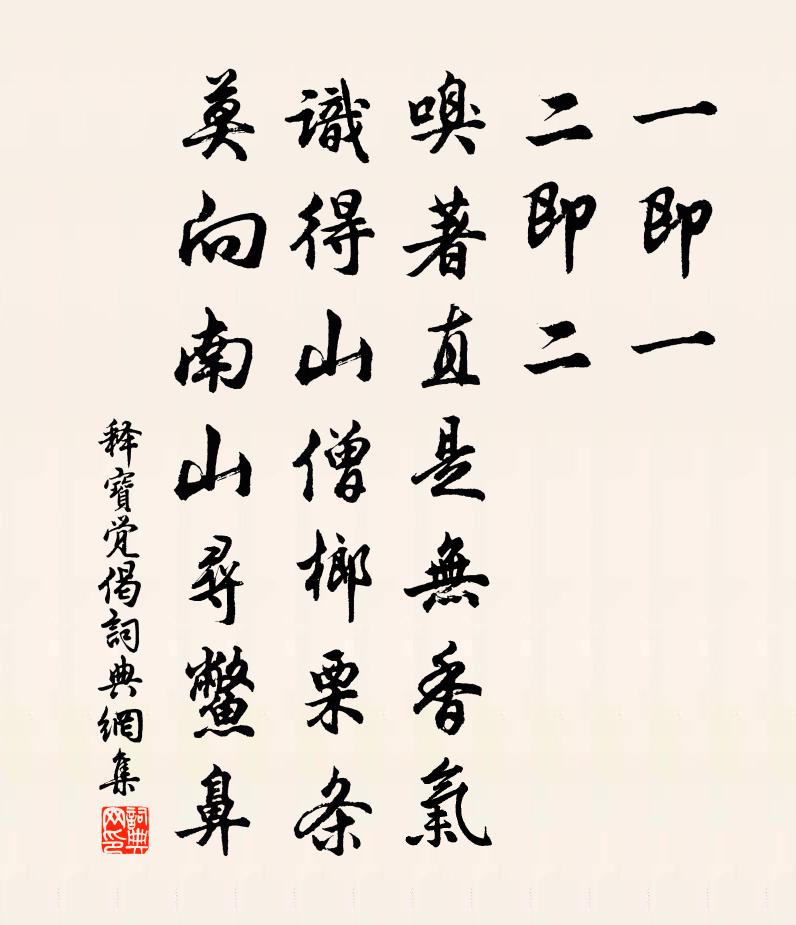 一即一
二即二
嗅著直是無香氣
識得山僧榔栗条
莫向南山尋鱉鼻
释寶觉偈詞典網集
詞典网印